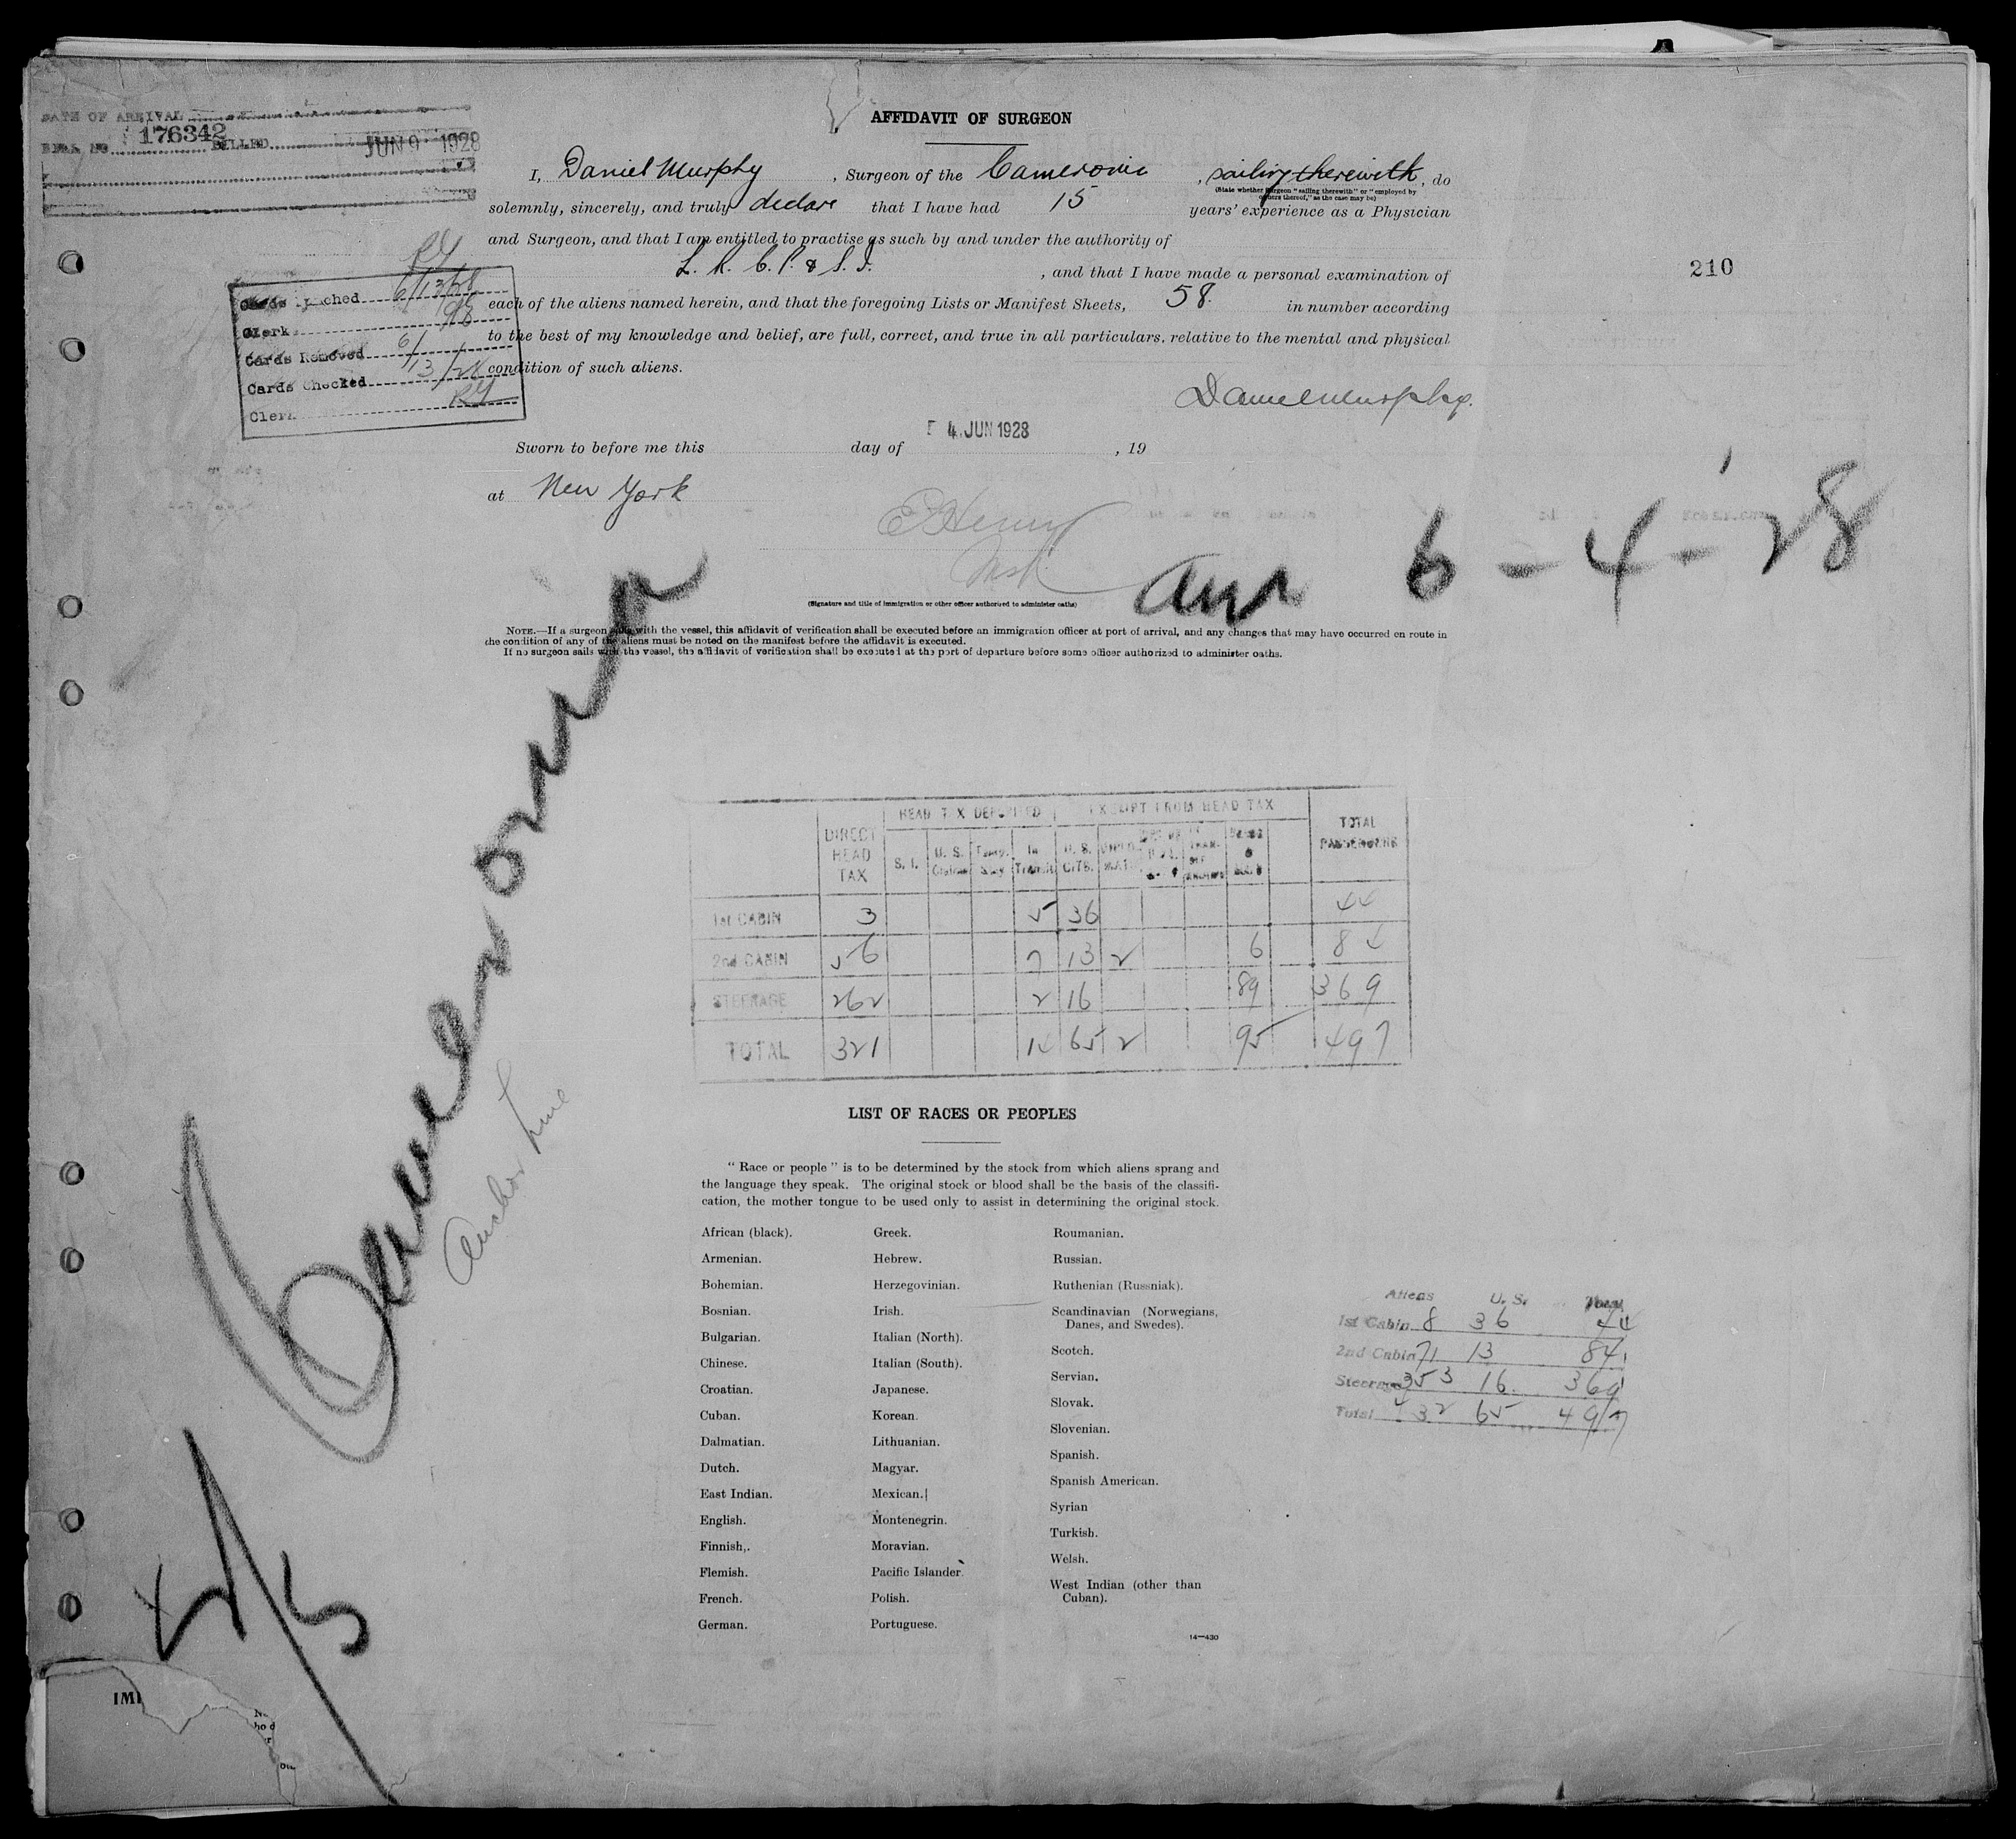 DATE OF ARRIVAL
176342
BILLED JUN 9 1928
AFFIDAVIT OF SURGEON
I, Daniel Murphy, Surgeon of the Cameronia, sailing therewith, do
(State whether Surgeon "sailing therewith" or "employed by
owners thereof," as the case may be)
solemnly, sincerely, and truly declare that I have had 15 years' experience as a Physician
and Surgeon, and that I am entitled to practise as such by and under the authority of
L. R. C. P. & S. I., and that I have made a personal examination of
each of the aliens named herein, and that the foregoing Lists or Manifest Sheets, 58 in number according
to the best of my knowledge and belief, are full, correct, and true in all particulars, relative to the mental and physical
condition of such aliens.
210
Cards Punched 6/13/28
Clerk
Cards Removed 6/
Cards Checked 13/28
Clerk
Daniel Murphy.
Sworn to before me this day of 4 JUN 1928, 19
at New York
E Henry
Insp.
(Signature and title of immigration or other officer authorized to administer oaths)
Arr 6-4-'28
NOTE.—If a surgeon sails with the vessel, this affidavit of verification shall be executed before an immigration officer at port of arrival, and any changes that may have occurred on route in
the condition of any of the aliens must be noted on the manifest before the affidavit is executed.
If no surgeon sails with the vessel, the affidavit of verification shall be executed at the port of departure before some officer authorized to administer oaths.
Cameronia
Anchor Line
DIRECT HEAD TAX HEAD TAX DEPOSITED EXEMPT FROM HEAD TAX TOTAL PASSENGERS
S. I. U. S. Citizen Temp. Stay In Transit U. S. CITS. DIPLOMATS
1st CABIN 3 5 36 44
2nd CABIN 56 7 13 2 6 84
STEERAGE 262 2 16 89 369
TOTAL 321 14 65 2 95 497
LIST OF RACES OR PEOPLES
"Race or people" is to be determined by the stock from which aliens sprang and
the language they speak. The original stock or blood shall be the basis of the classifi-
cation, the mother tongue to be used only to assist in determining the original stock.
African (black).
Armenian.
Bohemian.
Bosnian.
Bulgarian.
Chinese.
Croatian.
Cuban.
Dalmatian.
Dutch.
East Indian.
English.
Finnish,.
Flemish.
French.
German.
Greek.
Hebrew.
Herzegovinian.
Irish.
Italian (North).
Italian (South).
Japanese.
Korean.
Lithuanian.
Magyar.
Mexican.
Montenegrin.
Moravian.
Pacific Islander.
Polish.
Portuguese.
Roumanian.
Russian.
Ruthenian (Russniak).
Scandinavian (Norwegians,
Danes, and Swedes).
Scotch.
Servian.
Slovak.
Slovenian.
Spanish.
Spanish American.
Syrian
Turkish.
Welsh.
West Indian (other than
Cuban).
14—430
Aliens U. S. Total
1st Cabin 8 36 44
2nd Cabin 71 13 84
Steerage 353 16 369
Total 432 65 497
IMI